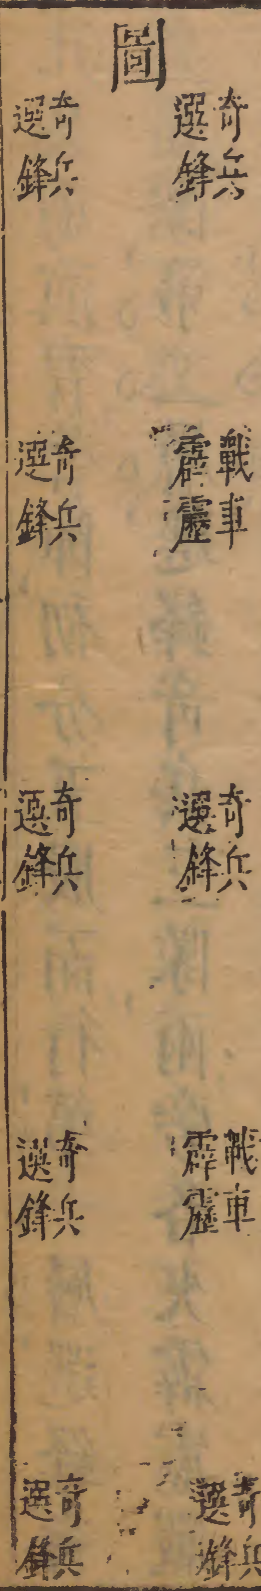 圖
奇兵
選鋒
戰車
霹靂
奇兵
選鋒
戰車
霹靂
奇兵
選鋒
奇兵
選鋒
奇兵
選鋒
奇兵
選鋒
奇兵
選鋒
奇兵
選鋒